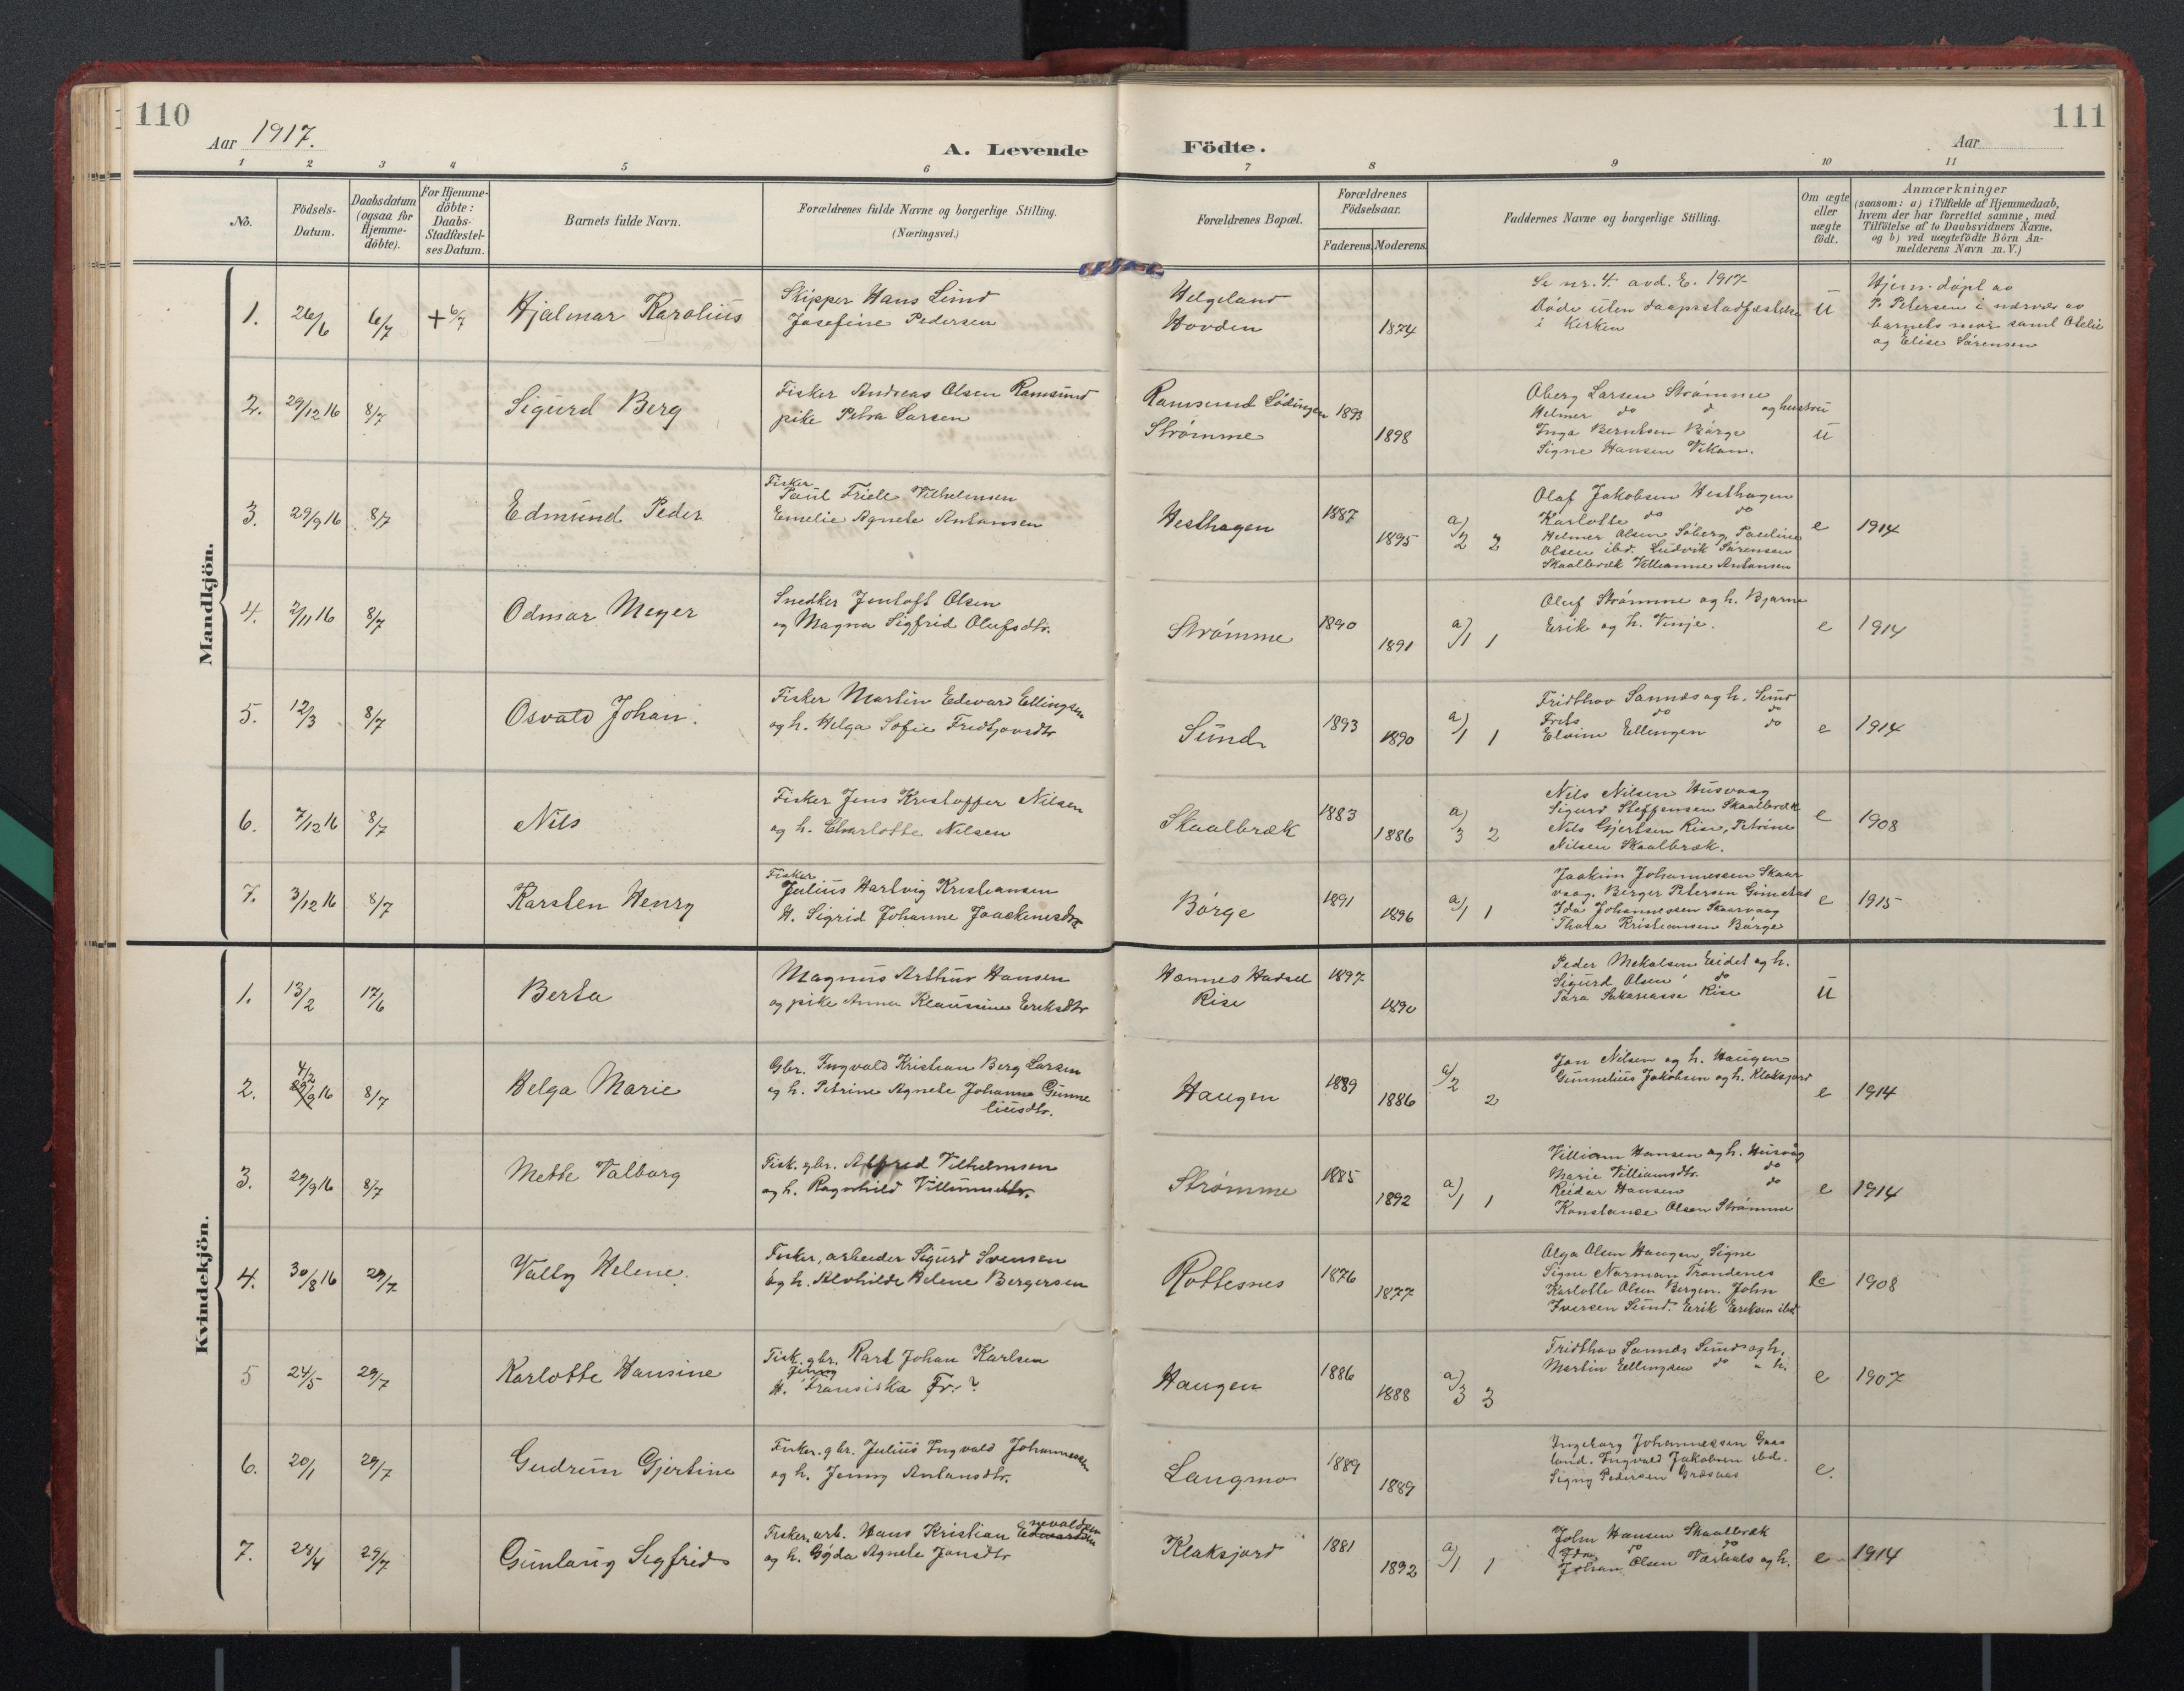 110
Aar 1917.
A. Levende Födte.
111
Aar
1 2 3 4 5 6 7 8 9 10 11
No.
Födsels-Datum.
Daabsdatum (ogsaa for Hjemme-döbte).
For Hjemme-döbte: Daabs-Stadfæstel-ses Datum.
Barnets fulde Navn.
Forældrenes fulde Navne og borgerlige Stilling.
(Næringsvei.)
Forældrenes Bopæl.
Forældrenes Födselsaar.
Faderens. Moderens.
Faddernes Navne og borgerlige Stilling.
Om ægte eller uægte födt.
Anmærkninger
(saasom: a) i Tilfælde af Hjemmedaab,
hvem der har forrettet samme, med
Tilföielse af to Daabsvidners Navne,
og b) ved uægtefödte Börn An-
melderens Navn m.V.)
Mandkjön.
1. 26/6 6/7 + 6/7 Hjalmar Karolius
Skipper Hans Lund
Josefine Pedersen
Helgeland
Hovden
1874
Se nr. 4 avd. E. 1917
Döde uten daapsstadfæstelse
i Kirken
u
Hjem. döpt av
P. Petersen i nærvær av
barnets mor samt Otelie
og Elise Sørensen
2. 29/12 16 8/7 Sigurd Berg
Fisker Andreas Olsen Ramsund
pike Petra Larsen
Ramsund Lödingen 1893
Strømme 1898
Oberg Larsen Strømme
Helmer do do og hustru
Inga Berntsen Börge
Signe Hansen Vikan.
u
3. 29/9 16 8/7 Edmund Peder
Fisker
Paul Friele Vilhelmsen
Emelie Agnete Antonsen
Westhagen 1887 1895
a)/2 2
Olaf Jakobsen Westhagen
Karlotte do do
Helmer Olsen Söberg, Pauline
Olsen ibd. Ludvik Sørensen
Skaalbræk Antonsen
e 1914
4. 2/11 16 8/7 Odmar Meyer
Snedker Jentoft Olsen
og Magna Sigfrid Olufsdtr.
Strømme 1890 1891
a)/1 1
Oluf Strømme og h. Bjarne
Erik og h. Vinje.
e 1914
5. 12/3 8/7 Osvald Johan.
Fisker Martin Edvard Ellingsen
og h. Helga Sofie Fredtjovsdtr
Sund 1893 1890
a)/1 1
Fridthov Sannes og h. Sund
Frits do do
Elvine Ellingen do
e 1914
6. 7/12 16 8/7 Nils
Fisker Jens Kristoffer Nilsen
og h. Charlotte Nilsen
Skaalbræk 1883 1886
a)/3 2
Nils Nilsen Husvaag
Sigurd Steffensen Skaalbræk
Nils Gjertsen Rise, Petrine
Nilsen Skaalbræk.
e 1908
7. 3/12 16 8/7 Karsten Henry
Fisker
Julius Hartvig Kristiansen
H. Sigrid Johanne Joackimsdtr
Börge 1891 1896
a)/1 1
Joakim Johannessen Skaar
vaag. Berger Petersen Gimstad
Ida Johannessen Skaarvaag
Thora Kristiansen Börge
e 1915
Kvindekjön.
1. 13/2 17/6 Berta
Magnus Arthur Hansen
og pike Anna Klaussine Eriksdtr
Hannes Hadsel 1897
Rise 1890
Peder Mekalsen Eidet og h.
Sigurd Olsen do
Tora Rise
u
2. 4/2 29/9 16 8/7 Helga Marie
Gbr. Ingvald Kristian Berg Larsen
og h. Petrine Agnete Johanna Gunne
liusdtr.
Haugen 1889 1886
a/2 2
Jon Nilsen og h. Haugen
Gunnelius Jakobsen og h. Klaksjord
e 1914
3. 29/9 16 8/7 Mette Valborg
Fisk. gbr. Alfred Vilhelmsen
og h. Ragnhild
Strømme 1885 1892
a)/1 1
Villiam Hansen og h. Husvåg
Marie Villiamsdtr. do
Reidar Hansen do
Konstance Olsen Strømme
e 1914
4. 30/8 16 29/7 Valby Helene.
Fisker, arbeider Sigurd Svensen
og h. Alvhilde Helene Bergersen
Rottesnes 1876 1877
Olga Olsen Haugen, Signe
Signe Norman Trondenes
Karlotte Olsen Bergen. John
Iversen Sund. Erik Eriksen ibd
e 1908
5 24/5 29/7 Karlotte Hansine
Fisk. gbr. Karl Johan Karlsen
Jenny
H. Fransiska Fr. ?
Haugen 1886 1888
a)/3 3
Fridthov Sannes Sund og h.
Martin Ellingsen do " h.
e 1907
6. 20/1 29/7 Gudrun Gjertine
Fisker. gbr. Julius Ingvald Johannessen
og h. Jenny Antonsdtr.
Langmo 1889 1889
Ingeborg Johannessen Gaas
land. Ingvald Jakobsen ibd.
Signy Pedersen
e.
7. 24/4 29/7 Gunlaug Sigfrid
Fisker, arb. Hans Kristian Enevoldsen
og h. Gyda Agnete Jonsdtr
Klaksjord 1881 1892
a)/1 1
John Hansen Skaalbræk
Ida do do
Johan Olsen Varhals og h.
e 1914